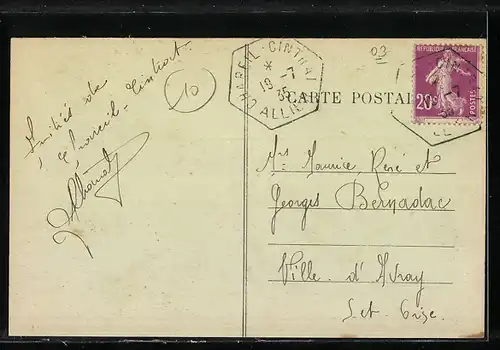 Amitiés de
Chareil-Cintrat
10
CHAREIL-CINTRAT
*
19 -7
35
ALLIER
CARTE POSTALE
03
REPUBLIQUE FRANÇAISE
20c
POSTES
Mrs Maurice, René et
Georges Bernadac
Ville-d'Avray
S-et-Oise.